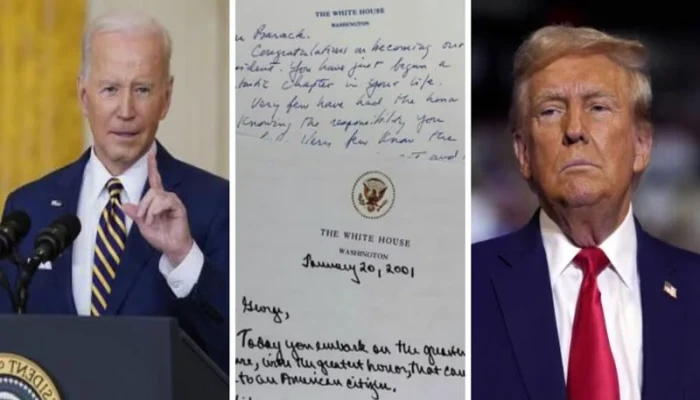 THE WHITE HOUSE
WASHINGTON
Barack.
Congratulations on becoming our
sident. You have just begun a
tastic Chapter in your life.
Very few have had the hono
knowing the responsibility you
Very few know the
and
THE WHITE HOUSE
WASHINGTON
January 20, 2001
George,
Today you embark on the greatest
with the greatest honor, that can
to an American citizen.
SIDENT